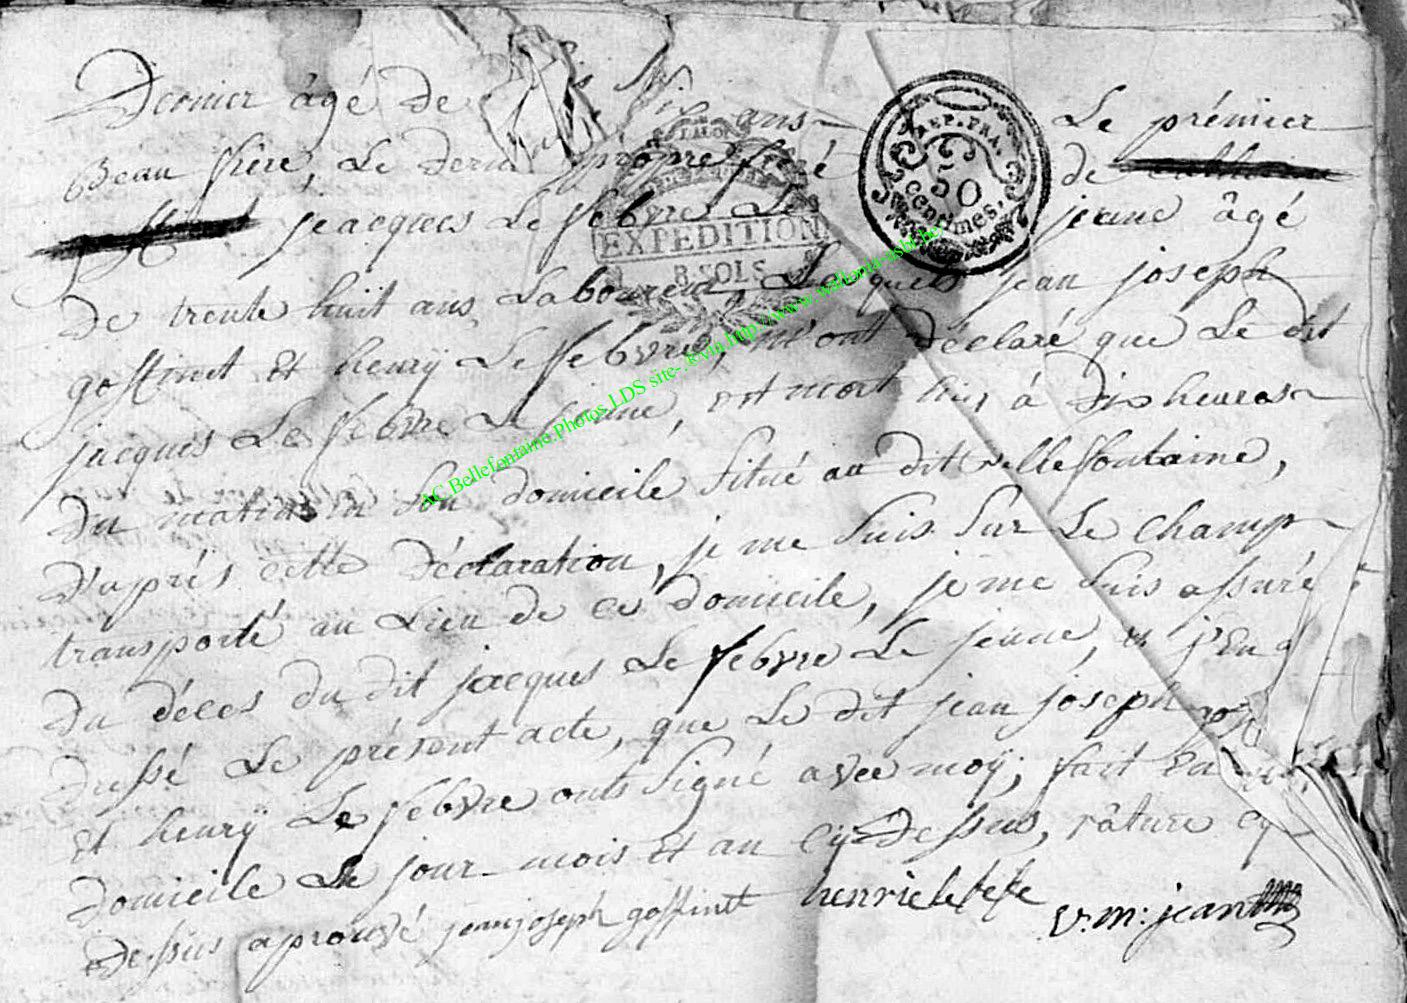 Dernier âgé De ans Le prémier
Beau frere, Le propre frere REP. FRA. 50 centimes. De
jeacques Le febvre Le EXPEDITION 8 SOLS jeune âgé
De trente huit ans Laboureur, Lesquels jean joseph
goffinet Et henrÿ Le febvre, m'ont déclaré que Le dit
jacques Le febvre Le jeune, est mort hier à Dix heures
Du matin en Son domicile Situé au dit Bellefontaine,
D'aprés cette Déclaration, je me Suis Sur Le Champ
transporté au Lieu de ce domicile, je me Suis assuré
Du déces du dit jacques Le febvre Le jeune, et j'en ai
Dressé Le présent acte, que Le dit jean jóseph
Et henrÿ Le febvre ont Signé avec moÿ, fait En
Domicile Le jour mois et an Cy Dessus, râture cy
Dessus aprouvé jean joseph goffinet henri le febve v. m: jean
AC Bellefontaine.Photos.LDS site- .&via.http://www.wallonia-asbl.be/